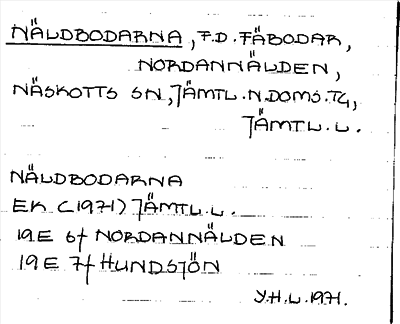 NÄLDBODARNA, F.D. FÄBODAR,
NORDANNÄLDEN,
NÄSKOTTS SN, JÄMTL. N. DOMS. TG,
JÄMTL. L.
NÄLDBODARNA
EK (1971) JÄMTL. L.
19E 6f NORDANNÄLDEN
19E 7f HUNDSJÖN
Y.H.L. 1971.